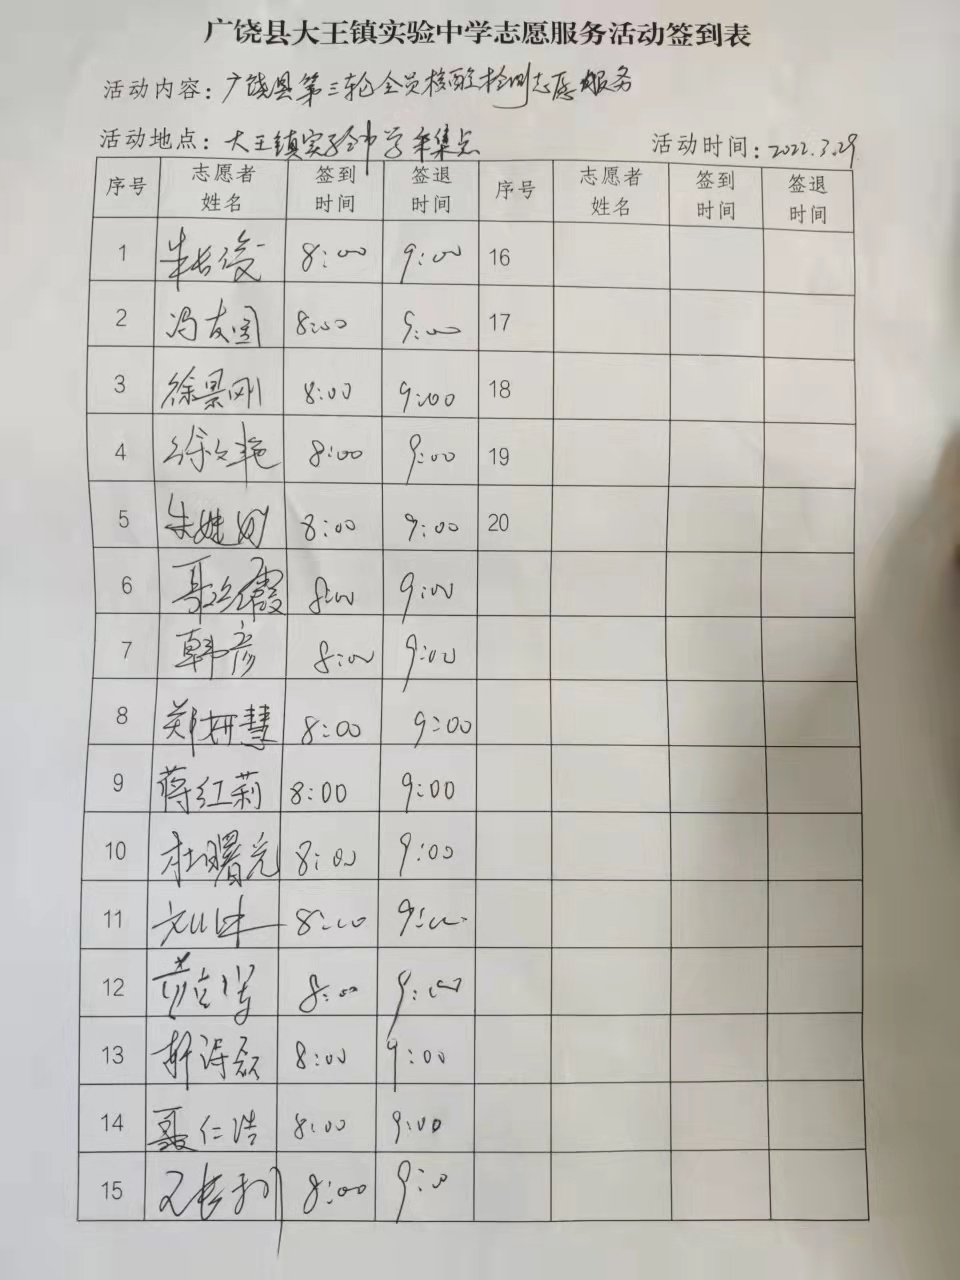 广饶县大王镇实验中学志愿服务活动签到表
活动内容：广饶县第三轮全员核酸检测志愿服务
活动地点：大王镇实验中学采集点 活动时间：2022.3.29
序号 志愿者姓名 签到时间 签退时间 序号 志愿者姓名 签到时间 签退时间
1 朱长俊 8:00 9:00 16
2 冯友国 8:00 9:00 17
3 徐景刚 8:00 9:00 18
4 徐文艳 8:00 9:00 19
5 朱 8:00 9:00 20
6 霞 8:00 9:00
7 韩彦 8:00 9:00
8 郑妍慧 8:00 9:00
9 蒋红莉 8:00 9:00
10 杜曙光 8:00 9:00
11 8:00 9:00
12 8:00 9:00
13 8:00 9:00
14 聂仁浩 8:00 9:00
15 8:00 9:0